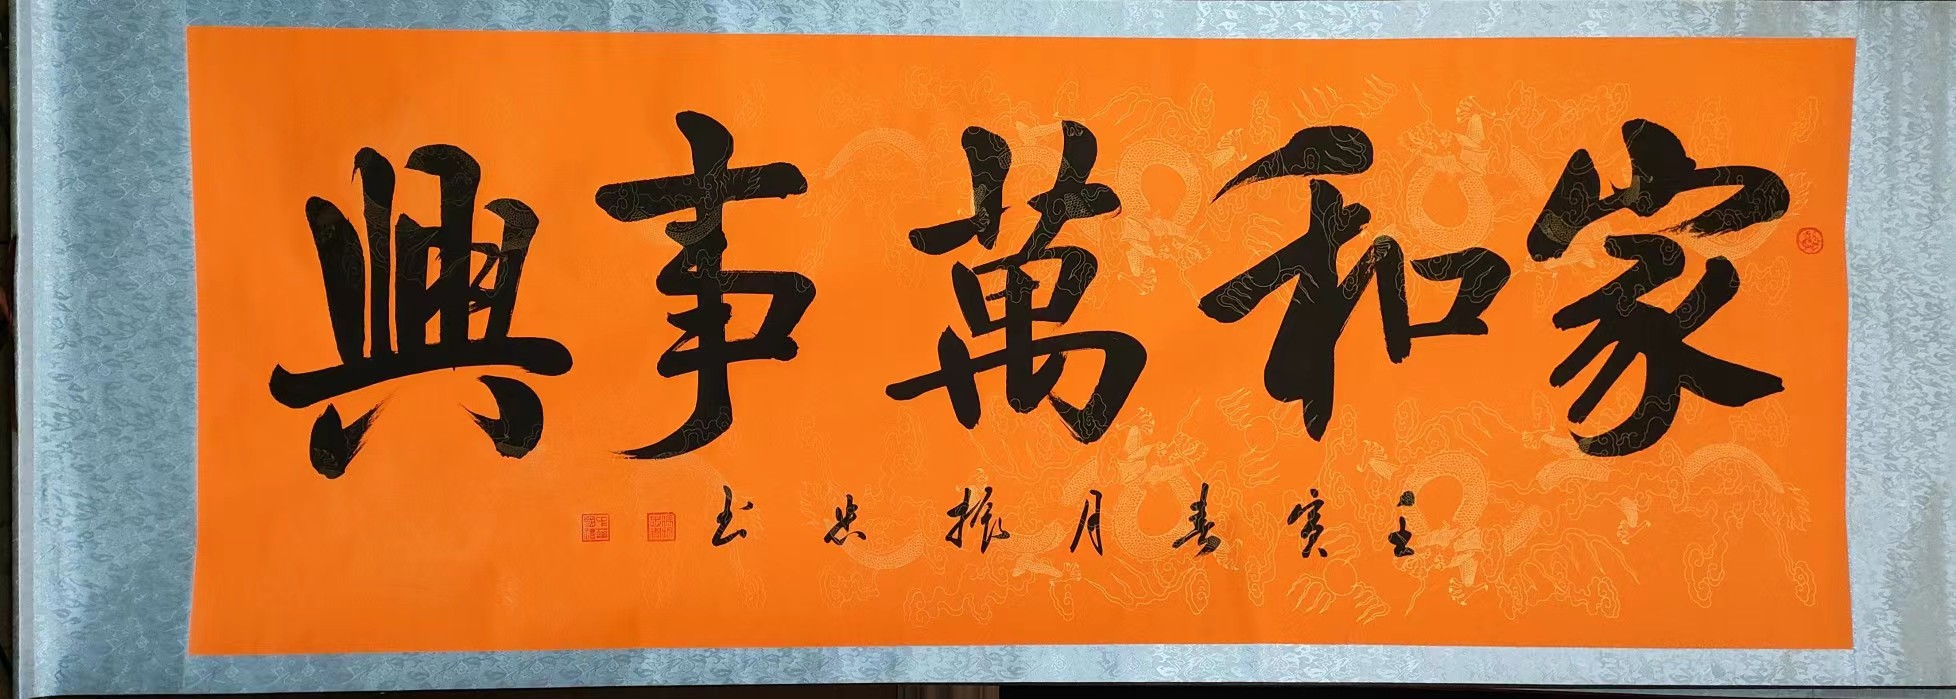 家和萬事興
壬寅春月振忠书